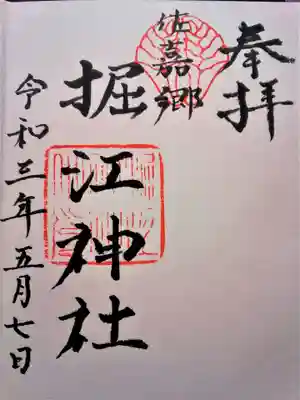 奉拝
佐嘉郷
堀江神社
令和三年五月七日